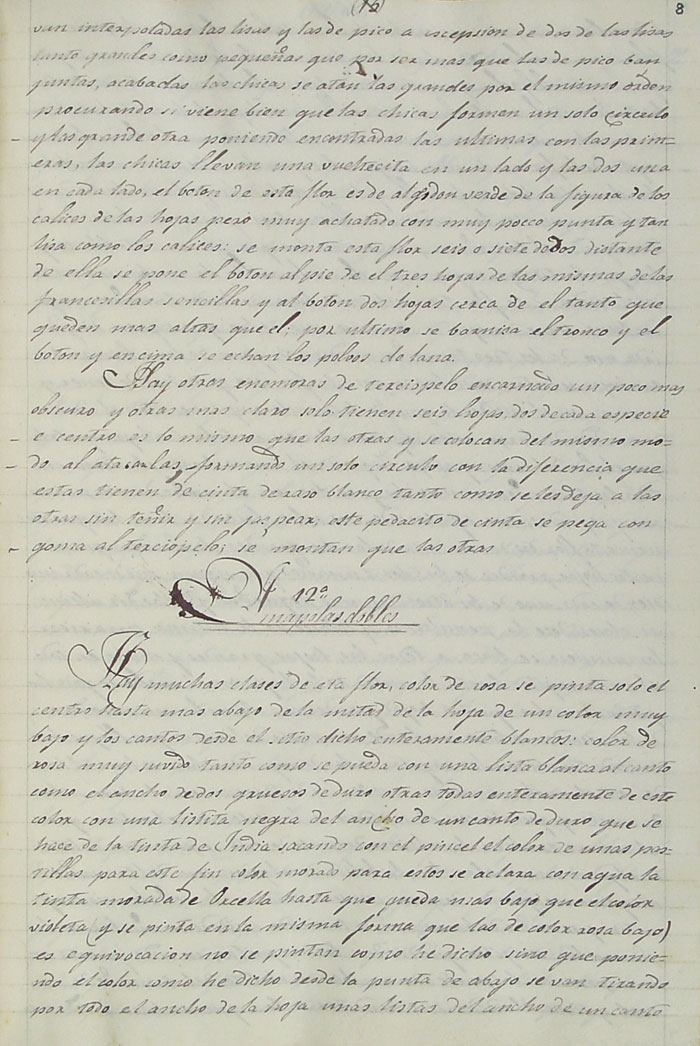 (16) 8
van interpoladas las lisas y las de pico a escepsion de dos de las lisas
tanto grandes como pequeñas que por ser mas que las de pico ban
juntas, acabadas las chicas se atan las grandes por el mismo orden
procurando si viene bien que las chicas formen un solo circulo
y las grande otra poniendo encontradas las ultimas con las prim-
eras, las chicas llevan una vueltecita en un lado y las dos una
en cada lado, el boton de esta flor es de algodon verde de la figura de los
calices de las hojas pero muy achatado con muy pocco punta y tan
lisa como los calices: se monta esta flor seis o siete dedos distante
de ella se pone el boton al pie de el tres hojas de las mismas de las
francesillas sencillas y al boton dos hojas cerca de el tanto que
queden mas altas que el; por ultimo se barnisa el tronco y el
boton y encima se echan los polvos de lana.
Hay otras enemoras de terciopelo encarnado un poco mas
obscuro y otras mas claro solo tienen seis hojas, dos de cada especie
e centro es lo mismo que las otras y se colocan del mismo mo-
do al atarlas, formando un solo circulo con la diferencia que
estas tienen de cinta de raso blanco tanto como se les deja a las
otras sin teñir y sin este pedacito de cinta se pega con
goma al terciopelo; se montan que las otras
12ª
mapolas dobles
Hay muchas clases de eta flor, color de rosa se pinta solo el
centro hasta mas abajo de la mitad de la hoja de un color muy
bajo y los cantos desde el sitio dicho enteramente blancos: color de
rosa muy suvido tanto como se pueda con una lista blanca al canto
como el ancho de dos gruesos de duro otras todas enteramente de este
color con una listita negra del ancho de un canto de duro que se
hace de la tinta de India sacando con el pincel el color de unas pas-
tillas para este fin color morado para estos se aclara con agua la
tinta morada de Orcella hasta que queda mas bajo que el color
violeta (y se pinta en la misma forma que las de color rosa bajo)
es equivocacion no se pintan como he dicho sino que ponie-
ndo el color como he dicho desde la punta de abajo se van tirando
por todo el ancho de la hoja unas listas del ancho de un canto